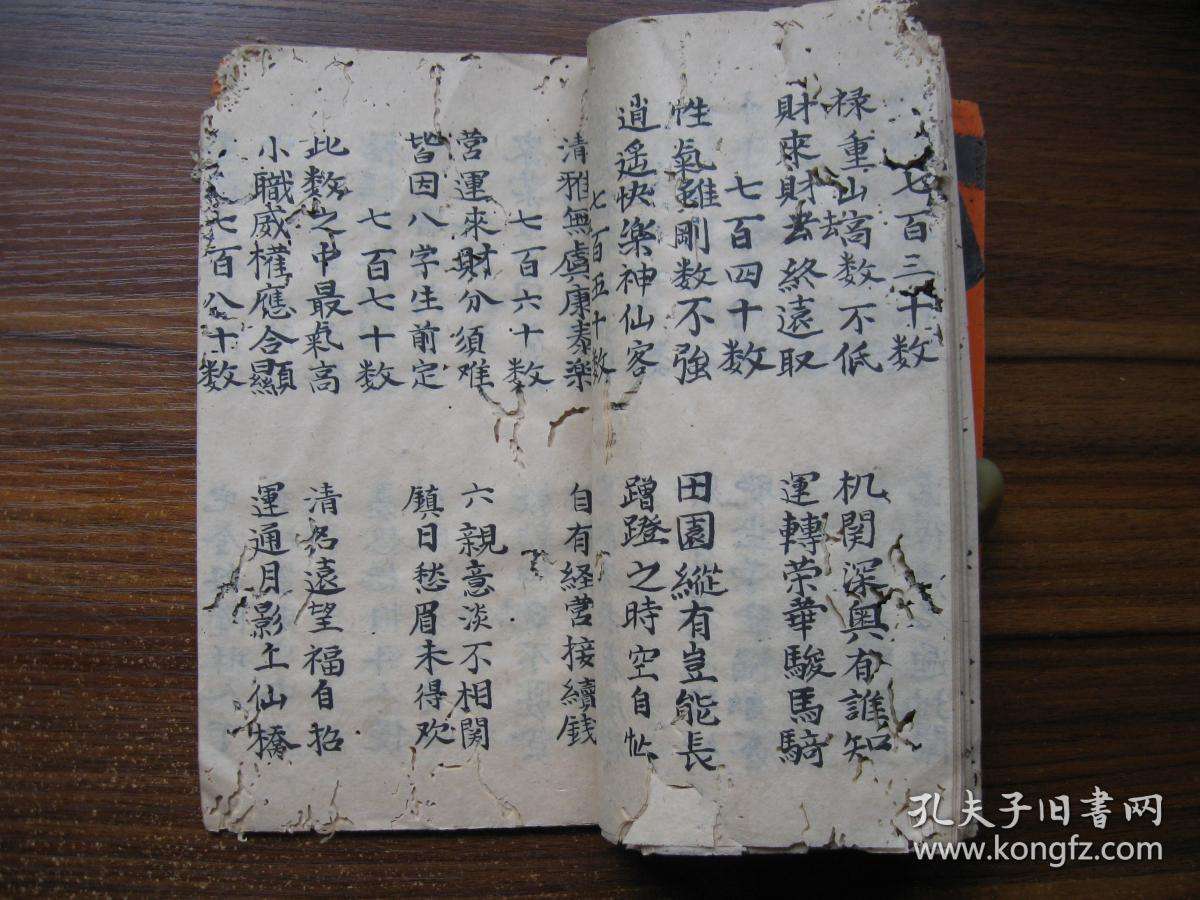 七百三十数
禄重山高数不低 机関深奥有誰知
財來財去終遠取 運轉荣華駿馬騎
七百四十数
性氣雖剛数不強 田園縱有豈能長
逍遥快樂神仙客 蹭蹬之時空自忙
七百五十数
清雅無虞康泰楽 自有経营接續钱
七百六十数
营運來財分須难 六親意淡不相関
皆因八字生前定 鎮日愁眉未得欢
七百七十数
此数之中最氣高 清名遠望福自招
小職威權應合顯 運通月影上仙橋
七百八十数
孔夫子旧書网
www.kongfz.com